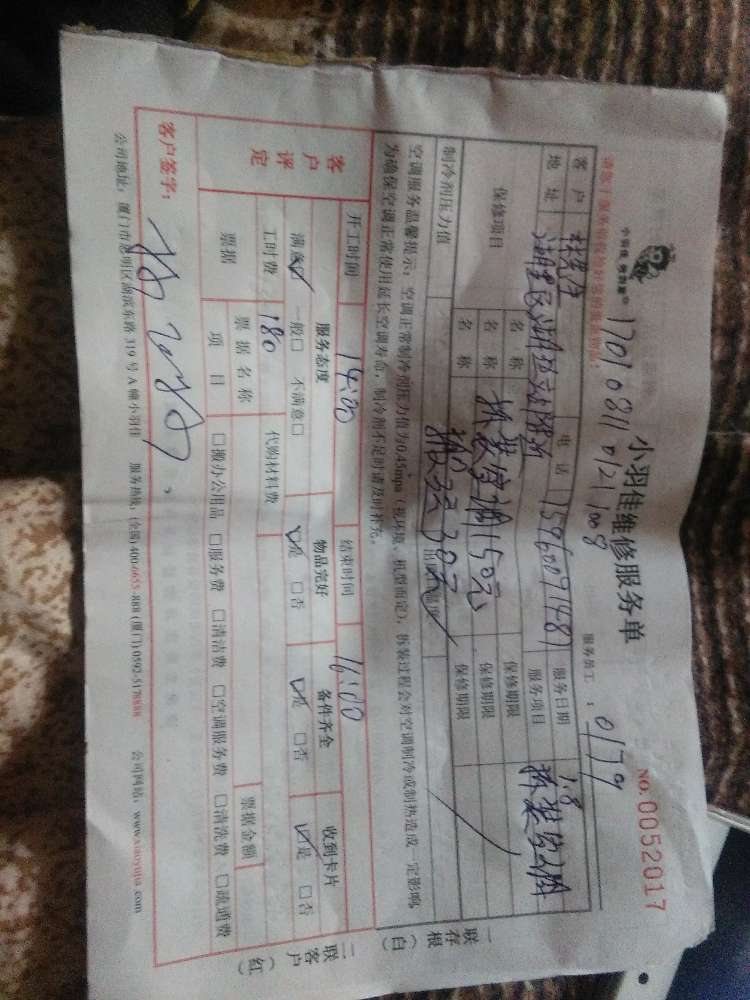 小羽佳维修服务单
NO.0052017
170108110121008
服务员工：0179
客户 电话 15960091481 服务日期 1.8
地址 服务项目 拆装空调
保修项目 名称 保修期限
名称 拆装空调150元 保修期限
名称 30元 保修期限
制冷剂压力值
空调服务温馨提示：空调正常制冷剂压力值为0.45mpa（视环境、机型而定），拆装过程会对空调制冷或制热造成一定影响，
为确保空调正常使用延长空调寿命，制冷剂不足时请及时补充。
开工时间 14:00 结束时间 16:00
客户评定
服务态度 物品完好 备件齐全 收到卡片
满意☑ 一般□ 不满意□ ☑是 □否 ☑是 □否 ☑是 □否
工时费 180 代购材料费
票据 票据名称 票据金额
项目 □搬办公用品 □服务费 □清洁费 □空调服务费 □清洗费 □疏通费
客户签字：
公司地址：厦门市思明区湖滨东路 319 号 A 幢小羽佳 服务热线：(全国) 400-6655-888 (厦门) 0592-5178888 公司网站：www.xiaoyujia.com
一联存根（白）
二联客户（红）